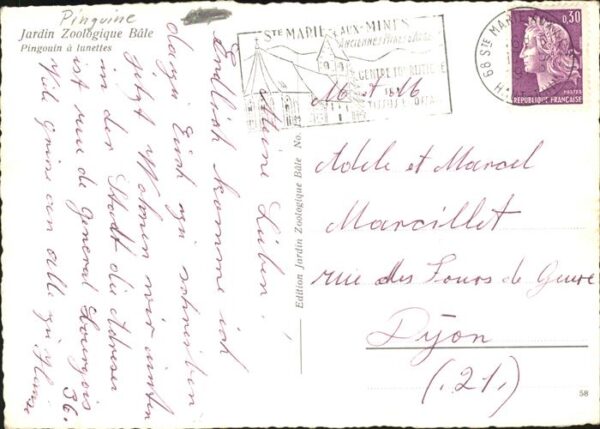 Pinguine
Jardin Zoologique Bâle
Pingouin à lunettes
STE MARIE AUX-MINES
CENTRE TOURISTIQUE
68 STE MAR
0,30
POSTES
REPUBLIQUE FRANÇAISE
Meine Lieben!
Endlich komme ich
dazu Euch zu schreiben
jetzt Wohnen wir unten
in der Stadt die Adresse
ist rue de General Bourgois
36.
Viele Grüsse an alle zu Hause
Edition Jardin Zoologique Bâle No.
Adele et Marcel
Marcillet
rue des Fours de
Dyon
(21)
58